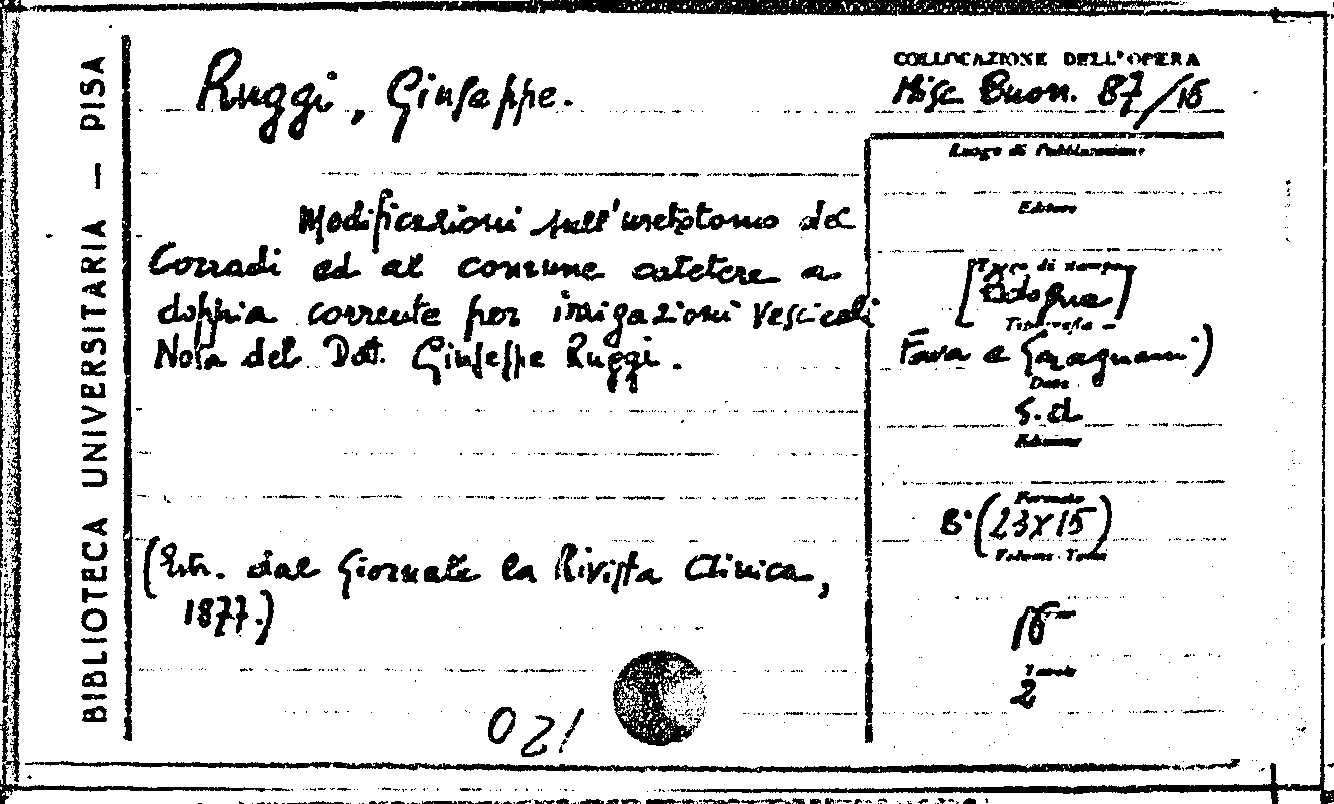 BIBLIOTECA UNIVERSITARIA — PISA
Ruggi, Giuseppe.
COLLOCAZIONE DELL'OPERA
Misc. Buon. 87/16
Luogo di Pubblicazione
Editore
Modificazioni sull'uretotomo del
Corradi ed al comune catetere a
doppia corrente per irrigazioni vescicali
Nota del Dott. Giuseppe Ruggi.
(Estr. dal Giornale la Rivista Clinica,
1877.)
Luogo di stampa
[Bologna]
Tipografia
Fava e Garagnani)
Data
s.d
Edizione
Formato
8° (23x15)
Volume - Tomi
16
Tavole
2
120